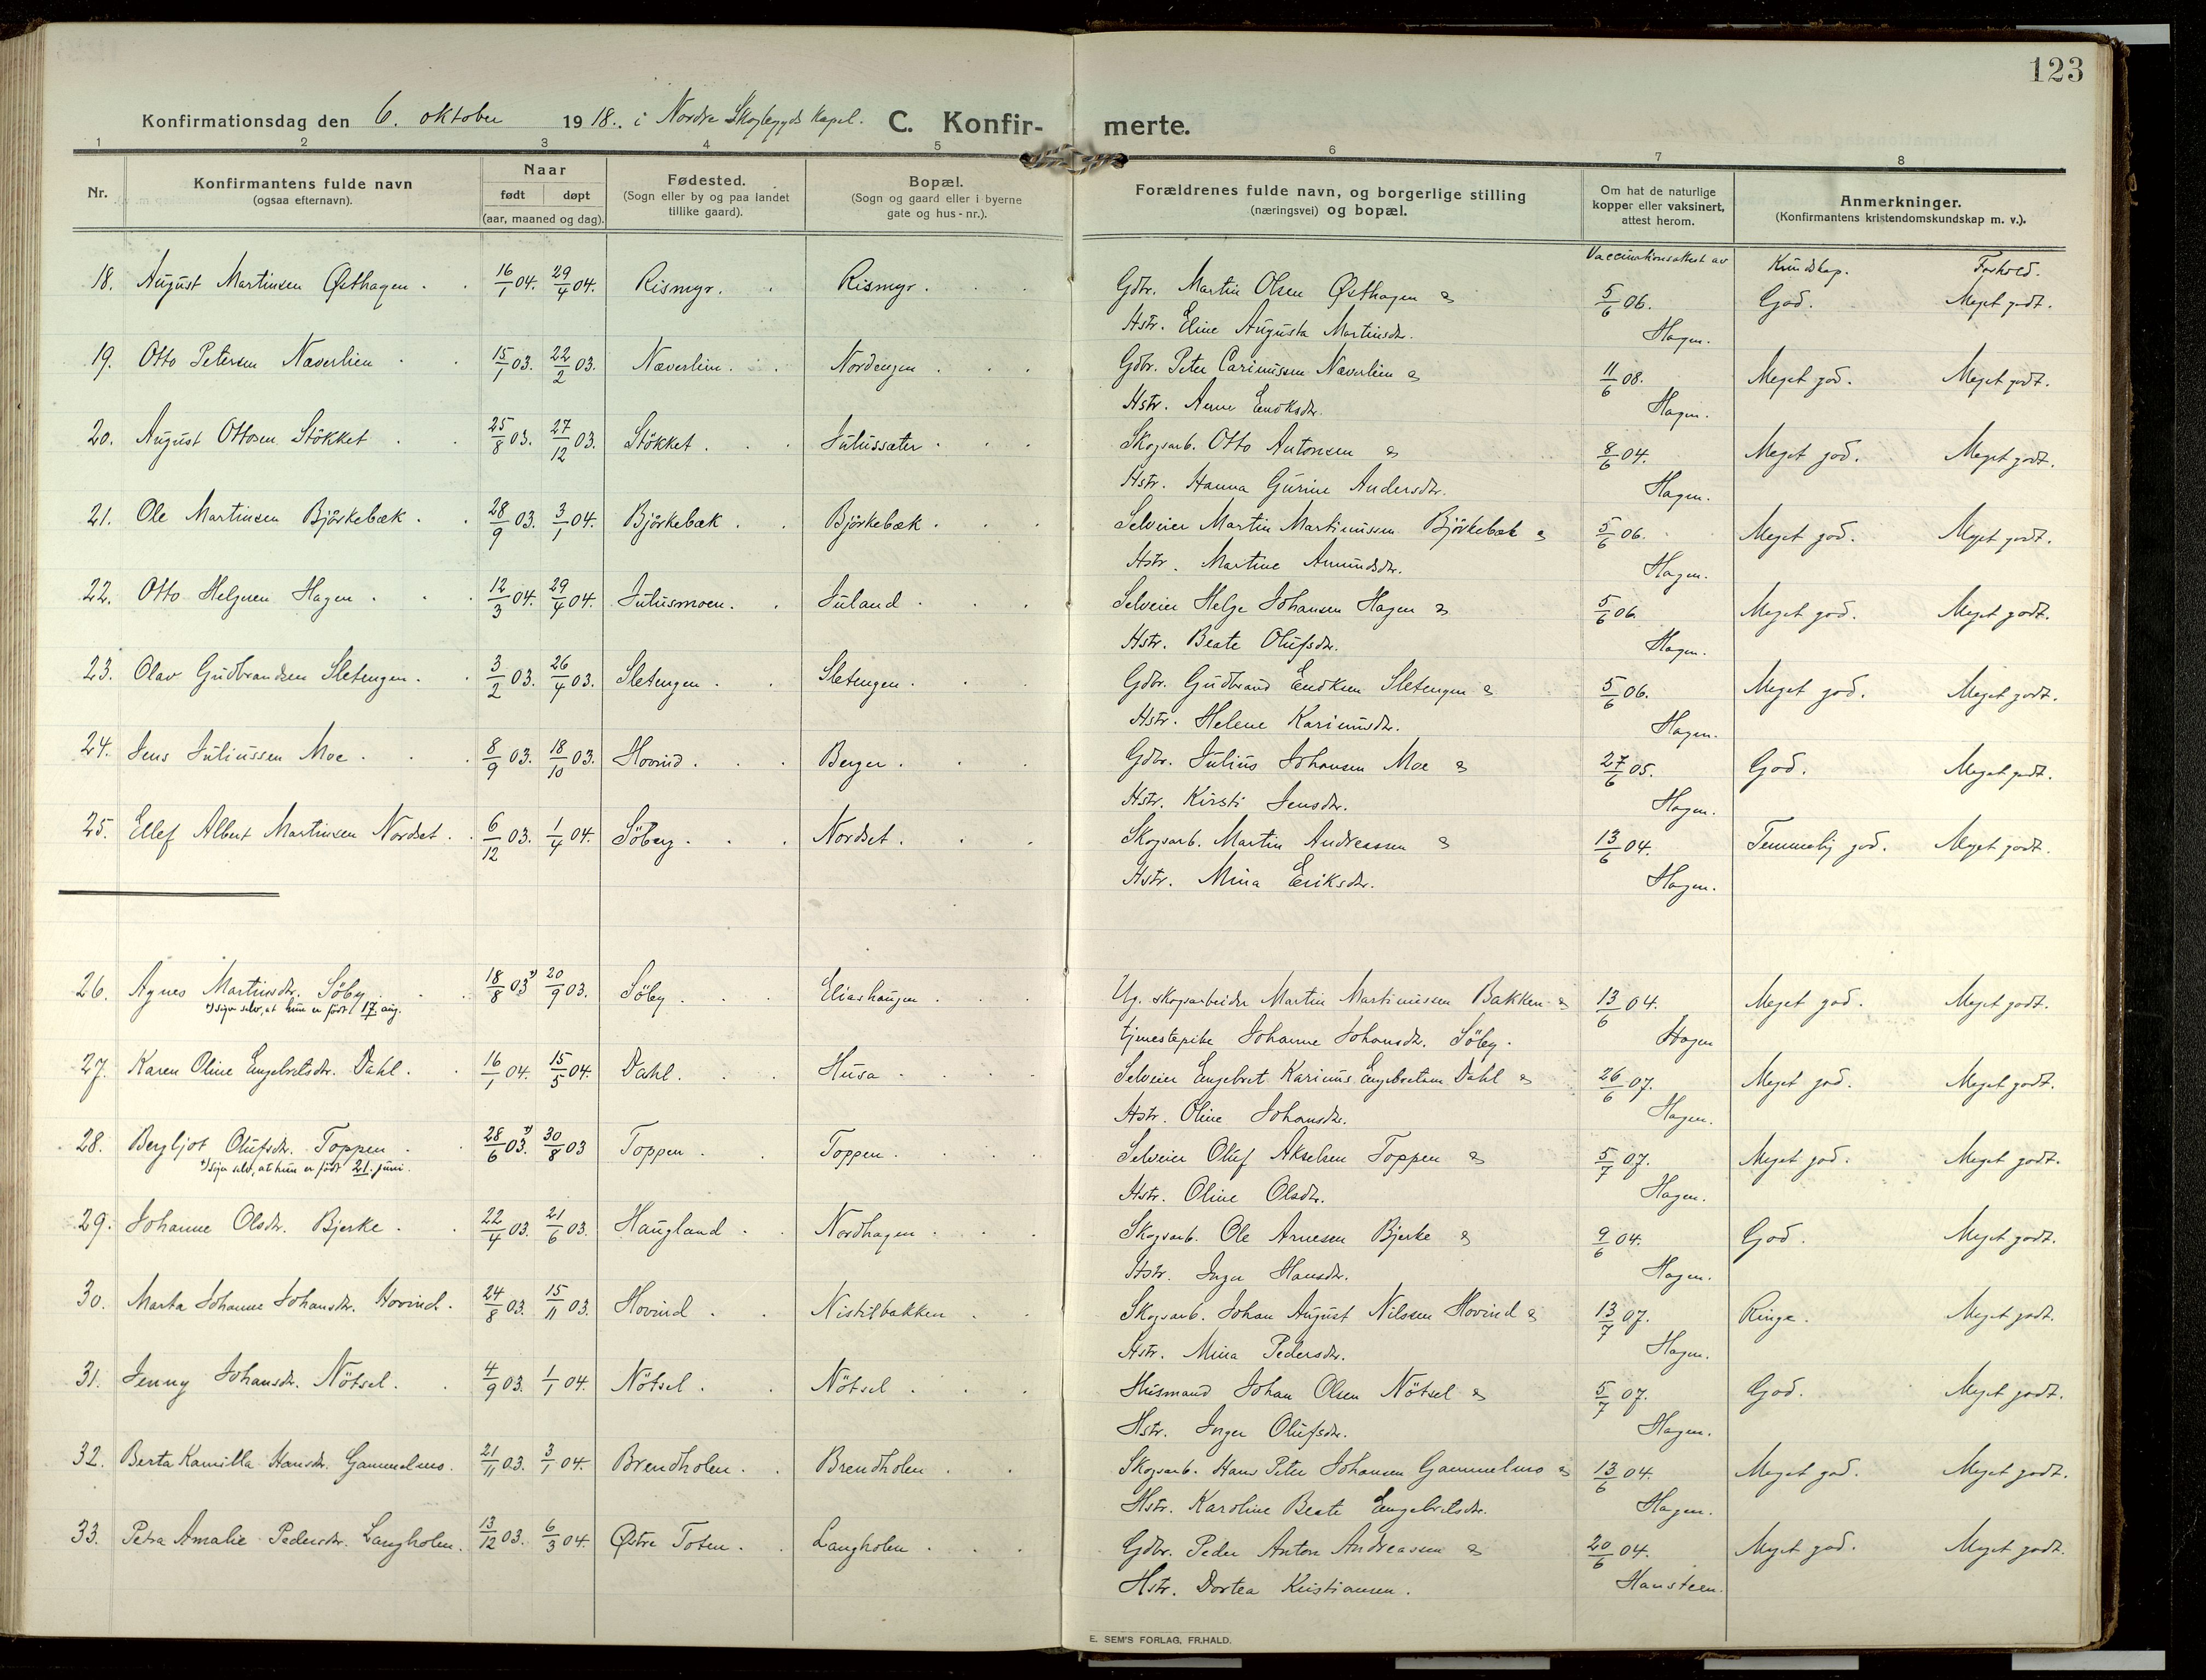 123
Konfirmationsdag den 6. oktober 1918. i Nordre Skogbygds Kapel. C. Konfir- merte.
1 2 3 4 5 6 7 8
Nr. Konfirmantens fulde navn (ogsaa efternavn). Naar født døpt (aar, maaned og dag). Fødested. (Sogn eller by og paa landet tillike gaard). Bopæl. (Sogn og gaard eller i byerne gate og hus-nr.). Forældrenes fulde navn, og borgerlige stilling (næringsvei) og bopæl. Om hat de naturlige kopper eller vaksinert, attest herom. Anmerkninger. (Konfirmantens kristendomskundskap m. v.).
Vaccinationsattest av Kundskap. Forhold.
18. August Martinsen Østhagen. 16/1 04. 29/4 04. Rismyr. Rismyr. Gdbr. Martin Olsen Østhagen & 5/6 06. God. Meget godt.
Hstr. Eline Augusta Martinsdr. Hagen.
19. Otto Petersen Næverlien 15/1 03. 22/2 03. Næverlien. Nordengen. Gdbr. Peter Carinussen Næverlien & 11/6 08. Meget god. Meget godt.
Hstr. Anne Eriksdr. Hagen.
20. August Ottosen Stökket 25/8 03. 27/12 03. Stökket. Julussæter. Skogsarb. Otto Antonsen & 8/6 04. Meget god. Meget godt.
Hstr. Hanna Gurine Andersdr. Hagen.
21. Ole Martinsen Björkebæk. 28/9 03. 3/1 04. Björkebæk. Björkebæk. Selveier Martin Martinussen Björkebæk & 5/6 06. Meget god. Meget godt.
Hstr. Martine Amundsdr. Hagen.
22. Otto Helgesen Hagen. 12/3 04. 29/4 04. Julusmoen. Juland. Selveier Helge Johansen Hagen & 5/6 06. Meget god. Meget godt.
Hstr. Beate Olufsdr. Hagen.
23. Olav Gudbrandsen Sletengen. 3/2 03. 26/4 03. Sletengen. Sletengen. Gdbr. Gudbrand Eriksen Sletengen & 5/6 06. Meget god. Meget godt.
Hstr. Helene Karinusdr. Hagen.
24. Jens Juliussen Moe. 8/9 03. 18/10 03. Hovind. Berger. Gdbr. Julius Johansen Moe & 27/6 05. God. Meget godt.
Hstr. Kirsti Jensdr. Hagen.
25. Ellef Albert Martinsen Nordset. 6/12 03. 1/4 04. Söberg. Nordset. Skogsarb. Martin Andreassen & 13/6 04. Temmelig god. Meget godt.
Hstr. Mina Eriksdr. Hagen.
26. Agnes Martinsdr. Söby. 18/8 03*) 20/9 03. Söby. Eliashaugen. Ug. skogsarbeider Martin Martinussen Bakken & 13/6 04. Meget god. Meget godt.
*) siger selv, at hun er född 17. aug. tjenestepike Johanne Johansdr. Söby. Hagen
27. Karen Oline Engebretsdr. Dahl. 16/1 04. 15/5 04. Dahl. Husa. Selveier Engebret Karinus Engebretsen Dahl & 26/6 07. Meget god. Meget godt.
Hstr. Oline Johansdr. Hagen.
28. Bergljot Olufsdr. Toppen. 28/6 03*) 30/8 03 Toppen. Toppen. Selveier Oluf Akselsen Toppen & 5/7 07. Meget god. Meget godt.
*) siger selv, at hun er född 21. juni. Hstr. Oline Olsdr. Hagen.
29. Johanne Olsdr. Bjerke. 22/4 03. 21/6 03. Haugland. Nordhagen. Skogsarb. Ole Arnesen Bjerke & 9/6 04. God. Meget godt.
Hstr. Inga Hansdr. Hagen.
30. Marta Johanne Johansdr. Hovind. 24/8 03. 15/11 03. Hovind. Nistilbakken. Skogsarb. Johan August Nilssen Hovind & 13/7 07. Ringe. Meget godt.
Hstr. Mina Pedersdr. Hagen.
31. Jenny Johansdr. Nötsel. 4/9 03. 1/1 04. Nötsel. Nötsel. Husmand Johan Olsen Nötsel & 5/7 07. God. Meget godt.
Hstr. Inger Olufsdr. Hagen.
32. Berta Kamilla Hansdr. Gammelmo. 21/11 03. 3/1 04. Brendholen. Brendholen. Skogsarb. Hans Peter Johansen Gammelmo & 13/6 04. Meget god. Meget godt.
Hstr. Karoline Beate Engebretsdr. Hagen.
33. Petra Amalie Pedersdr. Langholen. 13/12 03. 6/3 04. Østre Toten. Langholen. Gdbr. Peder Anton Andreassen & 20/6 04. Meget god. Meget godt.
Hstr. Dortea Kristiansen. Hansteen.
E. SEM'S FORLAG, FR.HALD.